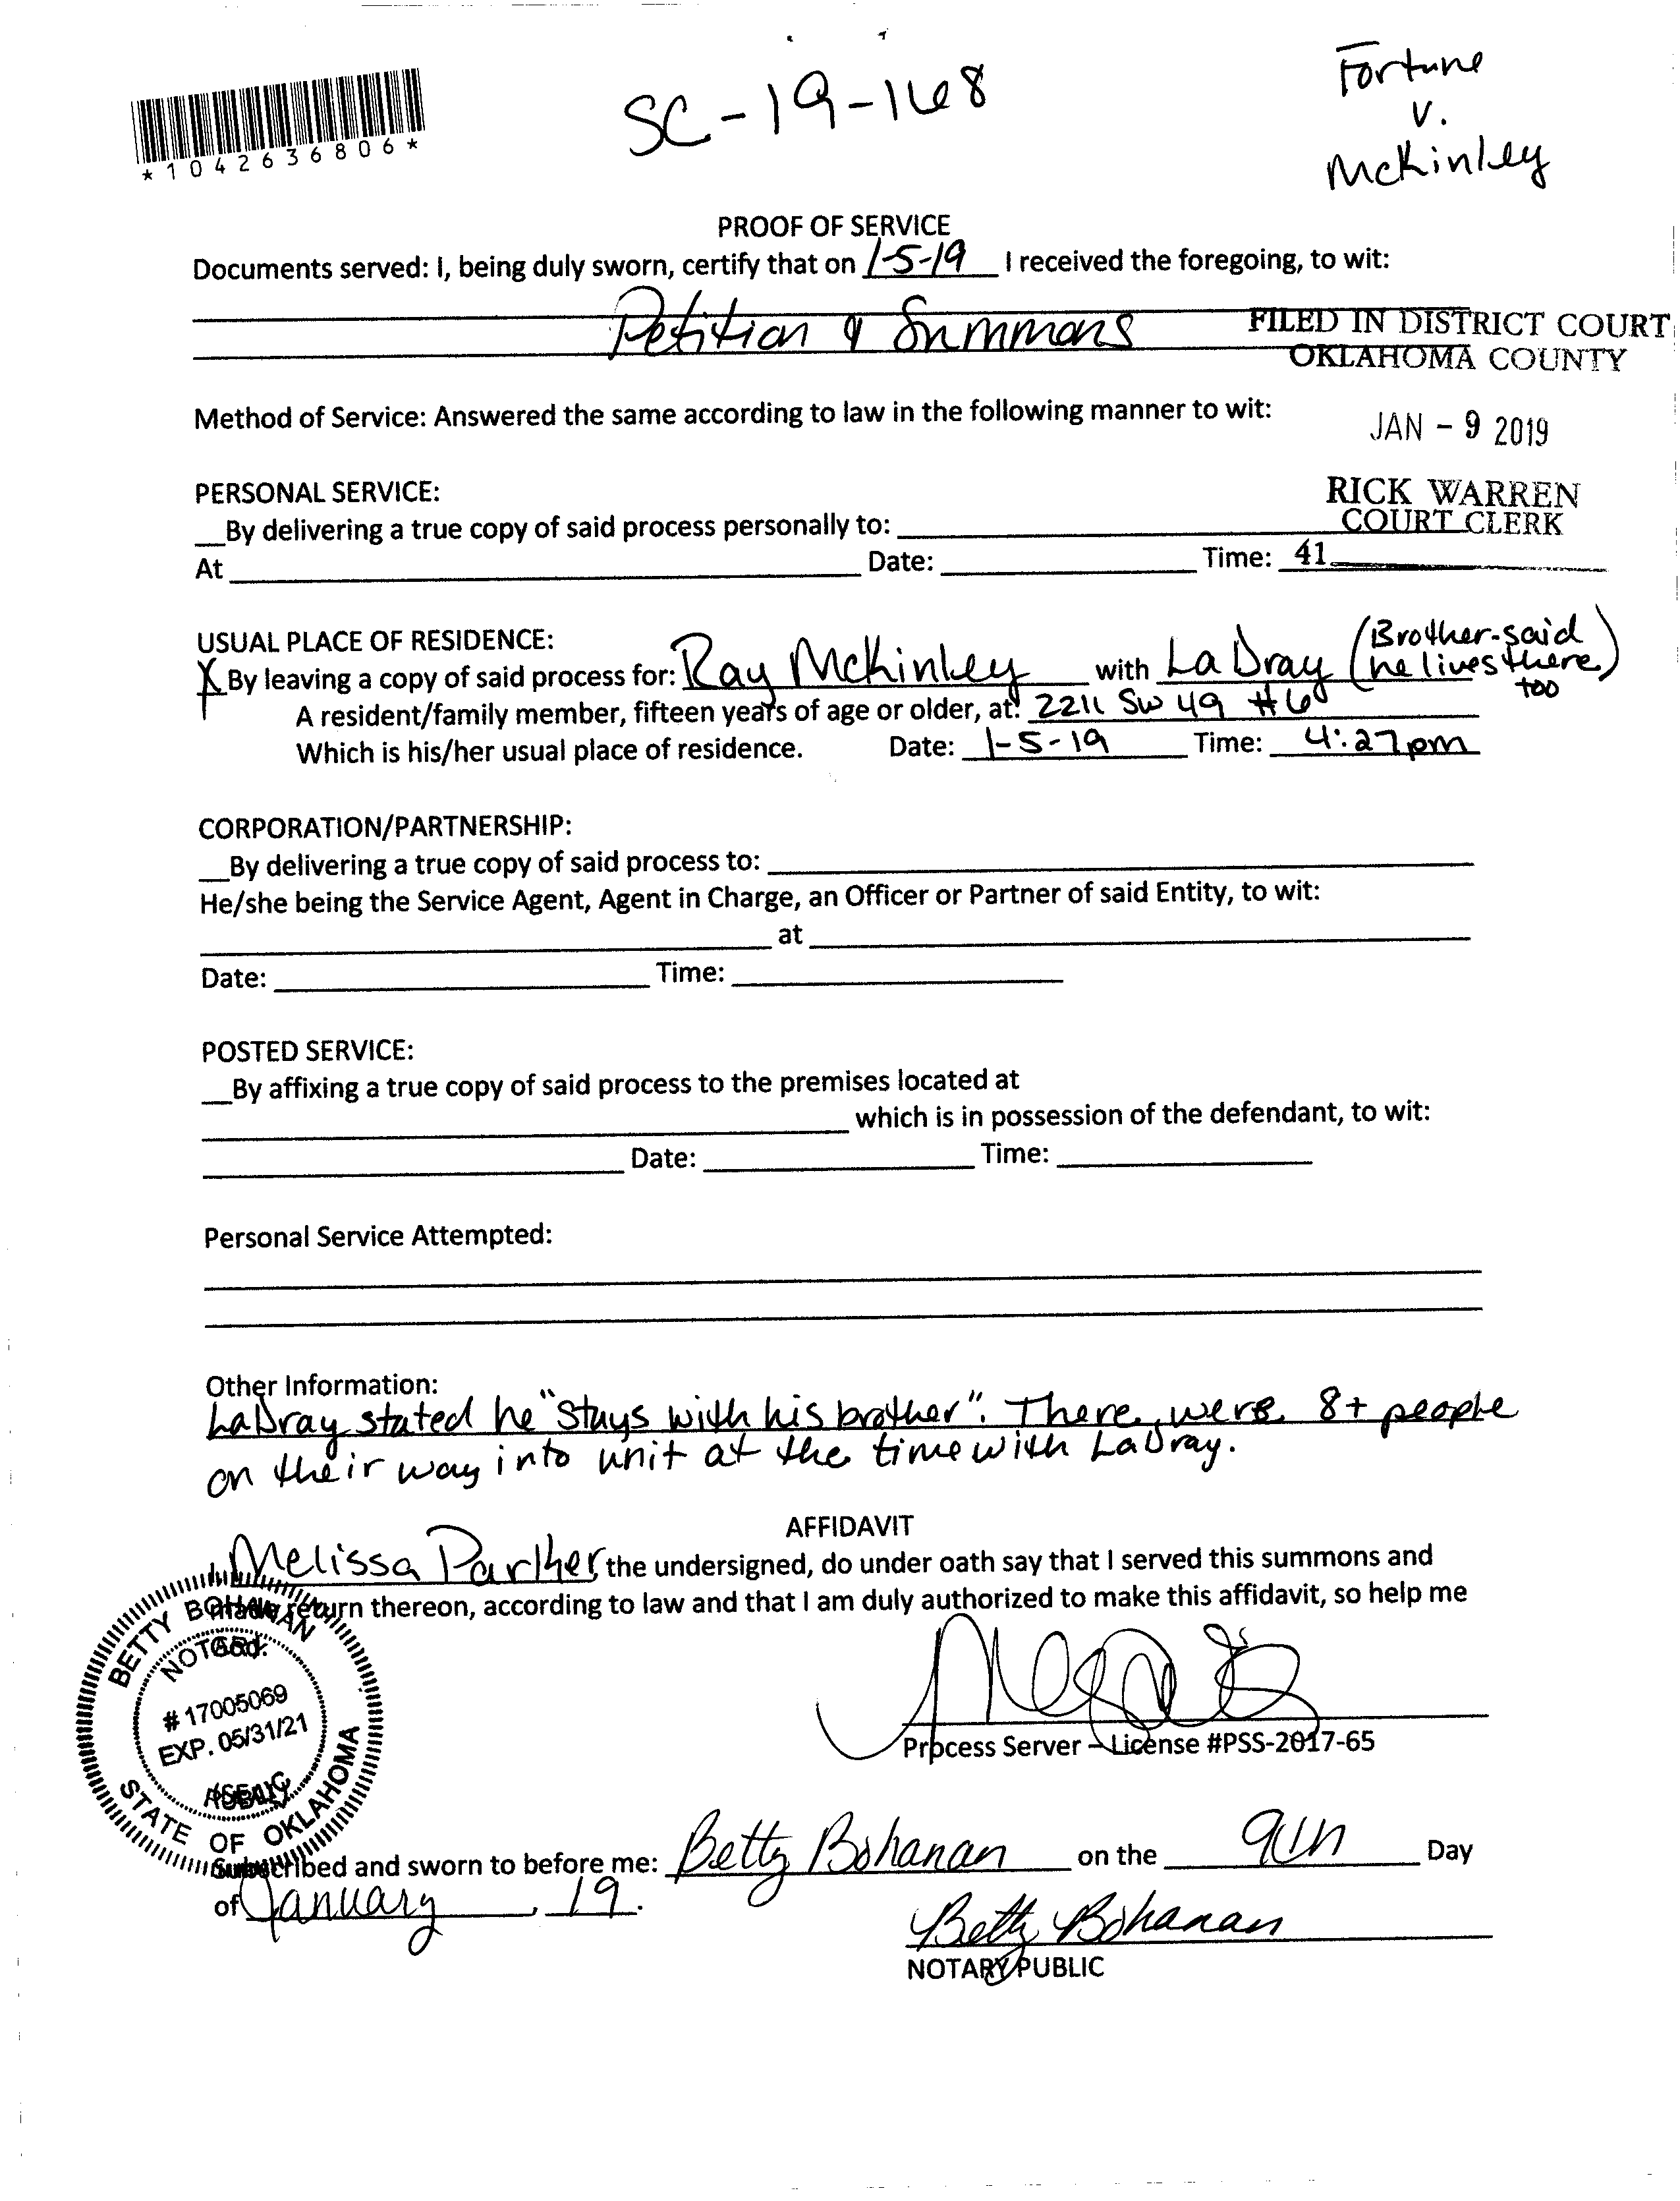 SC-19-168
Fortune
v.
McKinley
*1042636806*
PROOF OF SERVICE
Documents served: I, being duly sworn, certify that on 1-5-19 I received the foregoing, to wit:
Petition & Summons
FILED IN DISTRICT COURT
OKLAHOMA COUNTY
Method of Service: Answered the same according to law in the following manner to wit:
JAN - 9 2019
PERSONAL SERVICE:
RICK WARREN
COURT CLERK
__By delivering a true copy of said process personally to:
At Date: Time: 41
USUAL PLACE OF RESIDENCE:
X By leaving a copy of said process for: Ray McKinley with LaDray (Brother-said he lives there, too)
A resident/family member, fifteen years of age or older, at: 2211 SW 49 #6
Which is his/her usual place of residence. Date: 1-5-19 Time: 4:27pm
CORPORATION/PARTNERSHIP:
__By delivering a true copy of said process to:
He/she being the Service Agent, Agent in Charge, an Officer or Partner of said Entity, to wit:
at
Date: Time:
POSTED SERVICE:
__By affixing a true copy of said process to the premises located at
which is in possession of the defendant, to wit:
Date: Time:
Personal Service Attempted:
Other Information:
LaDray stated he "stays with his brother". There were 8+ people
on their way into unit at the time with LaDray.
AFFIDAVIT
I, Melissa Parker, the undersigned, do under oath say that I served this summons and
made return thereon, according to law and that I am duly authorized to make this affidavit, so help me
God.
BETTY BOHANAN
NOTARY
# 17005069
EXP. 05/31/21
PUBLIC
(SEAL)
STATE OF OKLAHOMA
Process Server – License #PSS-2017-65
Subscribed and sworn to before me: Betty Bohanan on the 9th Day
of January, 19.
Betty Bohanan
NOTARY PUBLIC